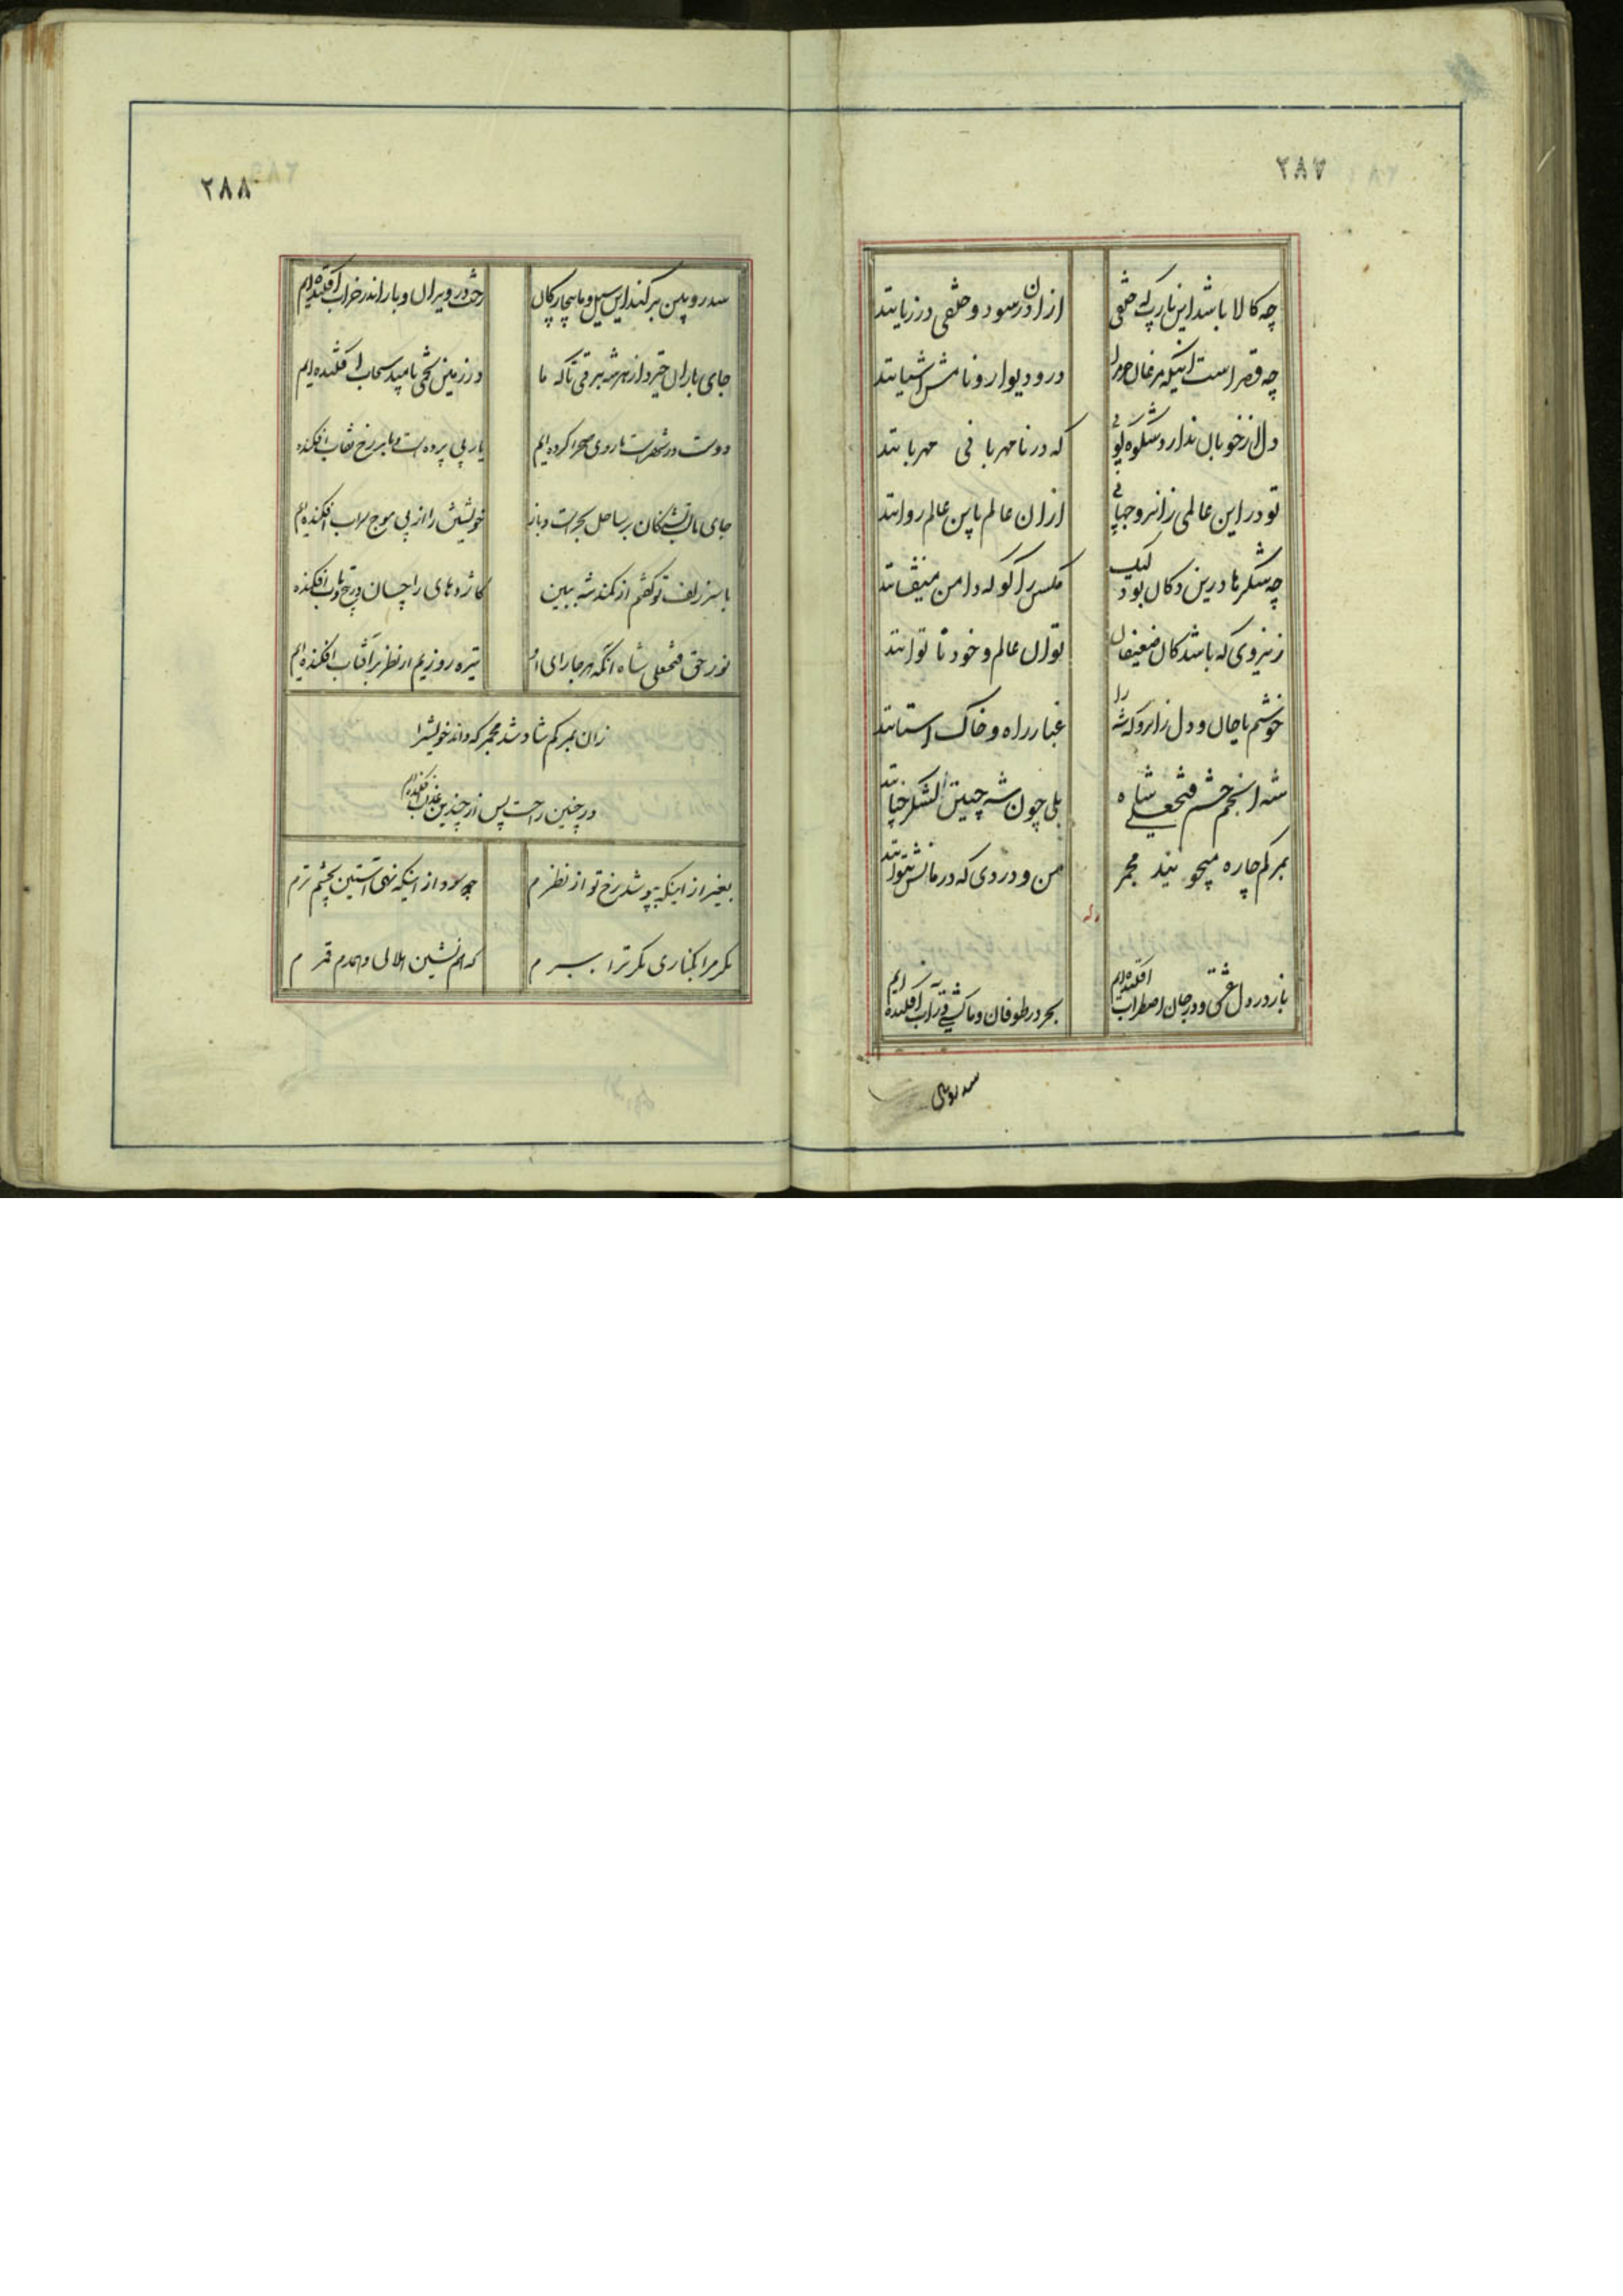 ۲۸۷
چه کالا باشد این یارب که خلقی
ازان در سود و خلقی در زیانند
چه قصر است اینکه مرغان حرم را
در و دیوار و بامش آشیانند
دل از خوبان ندارد شکوه لیکن
که در نامهربانی مهربانند
تو در این عالمی زانرو جهانی
ازان عالم باین عالم روانند
چه شکرها درین دکان بود لیک
مکس را کو که دامن میفشانند
ز نیروی که باشد کان ضعیفان
توان عالم و خود ناتوانند
خوشم با جان و دل زانرو که شه را
غبار راه و خاک آستانند
شه انجم حشم فتحعلی شاه
بلی چون شه چنین لشکر چنانند
بمرکم چاره میجویند مجمر
من و دردی که درمانش ندانند
وله
باز در دل عشق و در جان اضطراب افکنده‌ایم
بحر در طوفان و ما کشتی در آب افکنده ایم
سد رویین
۲۸۸
سد رویین برکند این سیل و ما بیچارکان
رخت در ویران و بار اندر خراب افکنده‌ایم
جای باران خیزد از هر شه برقی تا که ما
در زمین تخمی بامید سحاب افکنده ایم
دوست در شهرست ما روی صحرا کرده ایم
یار بی پرده است و ما بر رخ نقاب افکنده
جای ما لب تشنکان بر ساحل بحرست و باز
خویشتن را از پی موج سراب افکنده‌ایم
با سر زلف تو کفتم از کمند شه ببین
کاژدهای را چسان در پیچ و تاب افکنده
نور حق فتحعلی شاه آنکه هر جا رای او
تیره روزیم ار نظر بر آفتاب افکنده‌ایم
زان بمرکم شاد شد مجمر که داند خویشرا
در چنین راحت پس از چندین عذاب افکنده‌ایم
بغیر از اینکه بپوشد رخ تو از نظرم
چه سود از اینکه نهی آستین بچشم ترم
مکر مرا بکناری مکر ترا ببرم
که همنشین هلالی و همدم قمرم